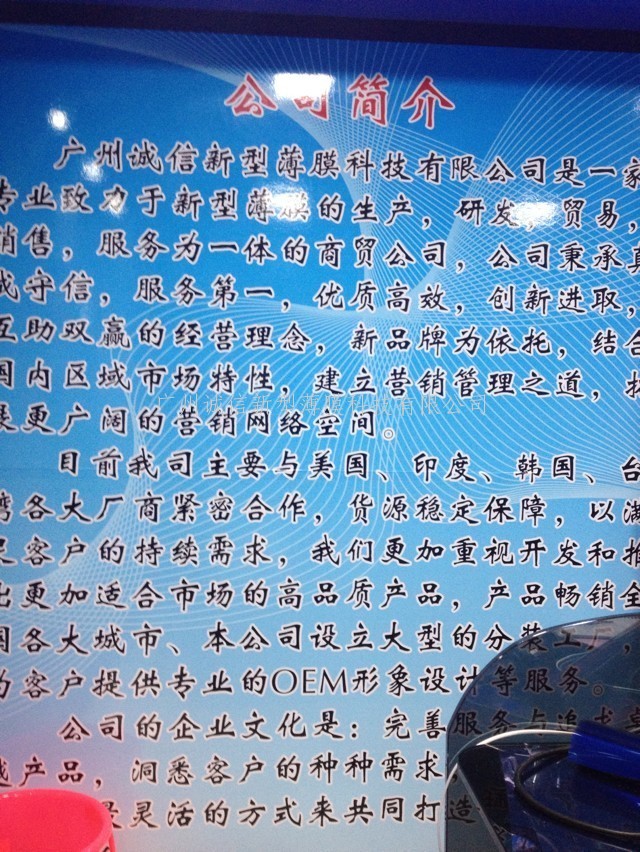 公司简介
广州诚信新型薄膜科技有限公司是一家
专业致力于新型薄膜的生产，研发，贸易，
销售，服务为一体的商贸公司，公司秉承真
诚守信，服务第一，优质高效，创新进取，
互助双赢的经营理念，新品牌为依托，结合
国内区域市场特性，建立营销管理之道，拓
广州诚信新型薄膜科技有限公司
展更广阔的营销网络空间。
目前我司主要与美国、印度、韩国、台
湾各大厂商紧密合作，货源稳定保障，以满
足客户的持续需求，我们更加重视开发和推
出更加适合市场的高品质产品，产品畅销全
国各大城市、本公司设立大型的分装工厂，
为客户提供专业的OEM形象设计等服务。
公司的企业文化是：完善服务与追求卓
越产品，洞悉客户的种种需求
最灵活的方式来共同打造